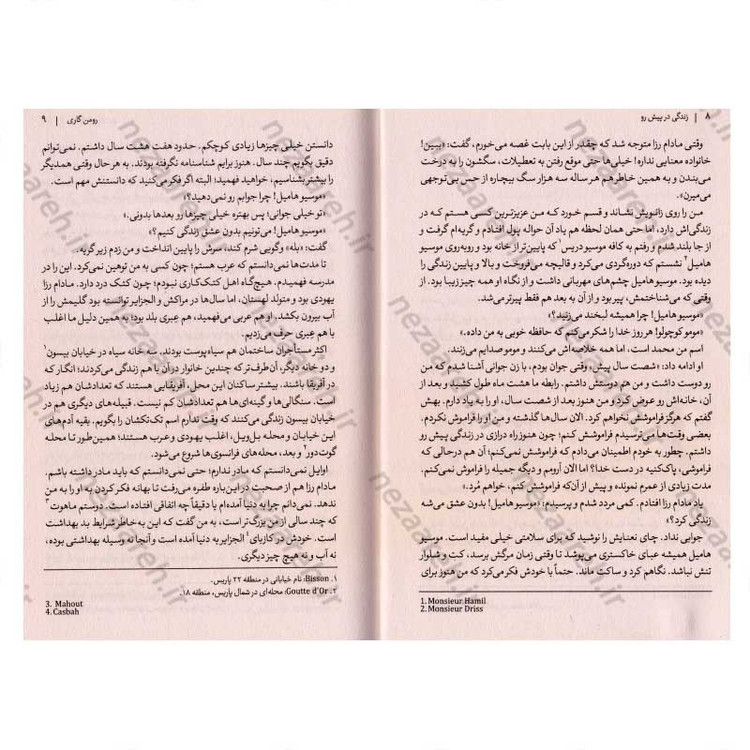 ۸ | زندگی در پیش رو
وقتی مادام رزا متوجه شد که چقدر از این بابت غصه می‌خورم، گفت: «ببین!
خانواده معنایی نداره! خیلی‌ها حتی موقع رفتن به تعطیلات، سگشون را به درخت
می‌بندن و به همین خاطر هم هر ساله سه هزار سگ بیچاره از حس بی‌توجهی
می‌میرن».
من را روی زانویش نشاند و قسم خورد که من عزیزترین کسی هستم که در
زندگی‌اش دارد، اما حتی همان لحظه هم یاد آن حواله پول افتادم و گریه‌ام گرفت و
از جا بلند شدم و رفتم به کافه موسیو دریس² که پایین‌تر از خانه بود و روبه‌روی موسیو
هامیل¹ نشستم که دوره‌گردی می‌کرد و قالیچه می‌فروخت و بالا و پایین زندگی را
دیده بود. موسیو هامیل چشم‌های مهربانی داشت و از نگاه او همه چیز زیبا بود. از
وقتی که می‌شناختمش، پیر بود و از آن به بعد هم فقط پیرتر می‌شد.
«موسیو هامیل! چرا همیشه لبخند می‌زنید؟»
«مومو کوچولو! هر روز خدا را شکر می‌کنم که حافظه خوبی به من داده.»
اسم من محمد است، اما همه خلاصه‌اش می‌کنند و مومو صدایم می‌زنند.
او ادامه داد: «شصت سال پیش، وقتی جوان بودم، با زن جوانی آشنا شدم که من
رو دوست داشت و من هم دوستش داشتم. رابطه ما هشت ماه طول کشید و بعد از
آن، خانه‌اش رو عوض کرد و من هنوز بعد از شصت سال، او را به یاد دارم. بهش
گفتم که هرگز فراموشش نخواهم کرد. الان سال‌ها گذشته و من او را فراموش نکردم.
بعضی وقت‌ها می‌ترسیدم فراموشش کنم؛ چون هنوز راه درازی در زندگی پیش رو
داشتم. چطور به خودم اطمینان می‌دادم که فراموشش نمی‌کنم؛ آن هم درحالی که
فراموشی، پاک‌کنیه در دست خدا؟ اما الان آرومم و دیگه جمیله را فراموش نمی‌کنم.
مدت زیادی از عمرم نمونده و پیش از آن‌که فراموشش کنم، خواهم مُرد.»
یاد مادام رزا افتادم. کمی مردد شدم و پرسیدم: «موسیو هامیل! بدون عشق می‌شه
زندگی کرد؟»
جوابی نداد. چای نعنایش را نوشید که برای سلامتی خیلی مفید است. موسیو
هامیل همیشه عبای خاکستری می‌پوشد تا وقتی زمان مرگش برسد، کت و شلوار
تنش نباشد. نگاهم کرد و ساکت ماند. حتماً با خودش فکر می‌کرد که من هنوز برای
1. Monsieur Hamil
2. Monsieur Driss
رومن گاری | ۹
دانستن خیلی چیزها زیادی کوچکم. حدود هفت هشت سال داشتم. نمی‌توانم
دقیق بگویم چند سال. هنوز برایم شناسنامه نگرفته بودند. به هر حال وقتی همدیگر
را بیشتر بشناسیم، خواهید فهمید؛ البته اگر فکر می‌کنید که دانستنش مهم است.
«موسیو هامیل! چرا جوابم رو نمی‌دهید؟»
«تو خیلی جوانی! پس بهتره خیلی چیزها رو بعدها بدونی.»
«موسیو هامیل! می‌تونیم بدون عشق زندگی کنیم؟»
گفت: «بله» و گویی شرم کند، سرش را پایین انداخت و من زدم زیر گریه.
تا مدت‌ها نمی‌دانستم که عرب هستم؛ چون کسی به من توهین نمی‌کرد. این را در
مدرسه فهمیدم. هیچ‌گاه اهل کتک‌کاری نبودم؛ چون کتک درد دارد. مادام رزا
یهودی بود و متولد لهستان، اما سال‌ها در مراکش و الجزایر توانسته بود گلیمش را از
آب بیرون بکشد. او هم عربی می‌فهمید، هم عِبری بلد بود؛ به همین دلیل ما اغلب
با هم عِبری حرف می‌زدیم.
اکثر مستأجران ساختمان هم سیاه‌پوست بودند. سه خانه سیاه در خیابان بیسون¹
و دو خانه دیگر، آن طرف‌تر که چندین خانوار در آن با هم زندگی می‌کردند؛ انگار که
در آفریقا باشند. بیشتر ساکنان این محل، آفریقایی هستند که تعدادشان هم زیاد
است. سنگالی‌ها و گینه‌ای‌ها هم تعدادشان کم نیست. قبیله‌های دیگری هم در
خیابان بیسون زندگی می‌کنند که وقت ندارم اسم تک‌تکشان را بگویم. بقیه آدم‌های
این خیابان و محله بل‌ویل، اغلب یهودی و عرب هستند؛ همین‌طور تا محله
گوت‌دور² و بعد، محله‌های فرانسوی‌ها شروع می‌شود.
اوایل نمی‌دانستم که مادر ندارم؛ حتی نمی‌دانستم که باید مادر داشته باشم.
مادام رزا هم از صحبت در این باره طفره می‌رفت تا بهانه فکر کردن به او را به من
ندهد. نمی‌دانم چرا به دنیا آمده‌ام یا دقیقاً چه اتفاقی افتاده است. دوستم ماهوت³
که چند سالی از من بزرگ‌تر است، به من گفت که این به خاطر شرایط بد بهداشت
است. خودش در کازبای⁴ الجزایر به دنیا آمده است. آنجا نه وسیله بهداشتی بوده،
نه آب و نه هیچ چیز دیگری.
۱. Bisson: نام خیابانی در منطقه ۲۲ پاریس.
۲. Goutte d'Or: محله‌ای در شمال پاریس، منطقه ۱۸.
3. Mahout
4. Casbah
nezaareh.ir